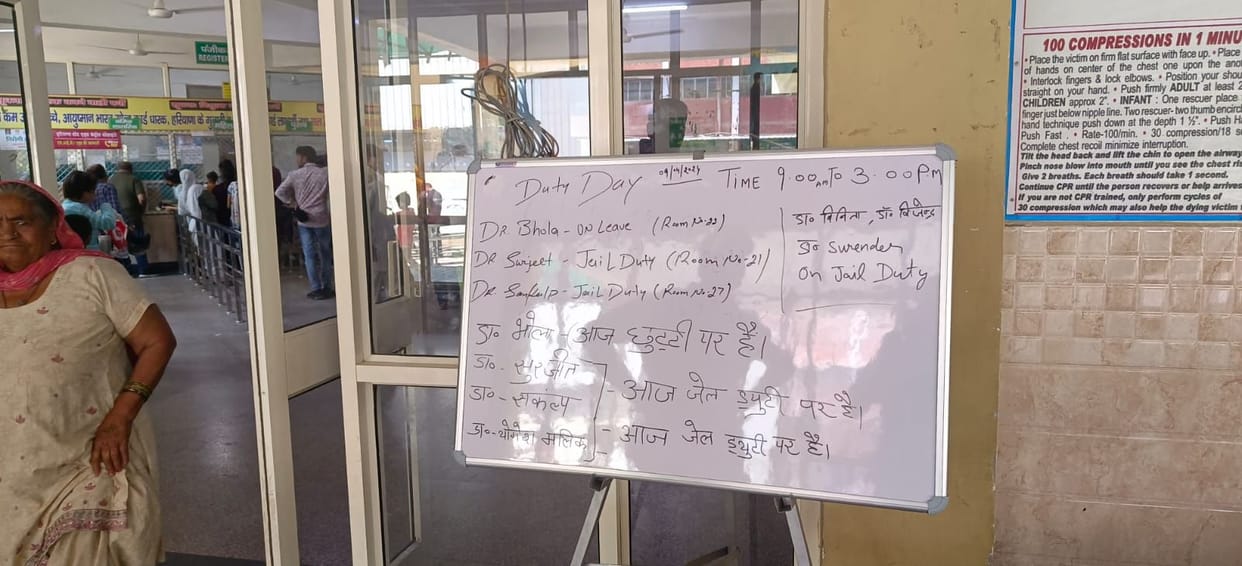 पंजीकरण
REGISTER
आयुष्मान भारत
धारक, हरियाणा के
Duty Day 09/10/2024 TIME 9.00 am To 3.00 PM
DR Bhola - ON Leave (Room No.22)
DR Surjeet - Jail Duty (Room No-21)
DR Sankalp - Jail Duty (Room No.27)
डॉ०
डॉ०
डॉ० Surender
On Jail Duty
डा० भोला - आज छुट्टी पर हैं।
डा०- सुरजीत
डा०- संकल्प - आज जेल ड्युटी पर है।
डा०- योगेश मलिक - आज जेल ड्युटी पर है।
100 COMPRESSIONS IN 1 MINU
• Place the victim on firm flat surface with face up. • Place
of hands on center of the chest one upon the ano
• Interlock fingers & lock elbows. • Position your shou
straight on your hand. • Push firmly ADULT at least 2
CHILDREN approx 2". • INFANT : One rescuer place
finger just below nipple line. Two rescuer- two thumb encircl
hand technique push down at the depth 1 ½". • Push Ha
Push Fast . • Rate-100/min. • 30 compression/18 s
Complete chest recoil minimize interruption.
Tilt the head back and lift the chin to open the airway
Pinch nose blow into mouth until you see the chest ris
Give 2 breaths. Each breath should take 1 second.
Continue CPR until the person recovers or help arrives
If you are not CPR trained, only perform cycles of
30 compression which may also help the dying victim